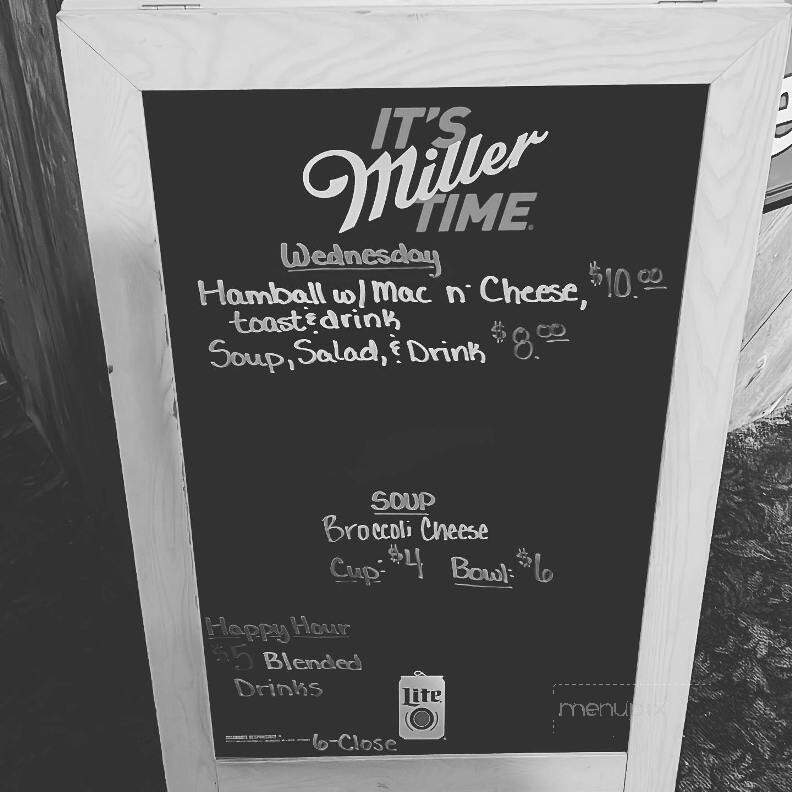 IT'S
Miller
TIME.
Wednesday
Hamball w/ Mac n' Cheese, $10.00
toast & drink
Soup, Salad, & Drink $8.00
SOUP
Broccoli Cheese
Cup: $4 Bowl: $6
Happy Hour
$5 Blended
Drinks
Lite
6-Close
menupix